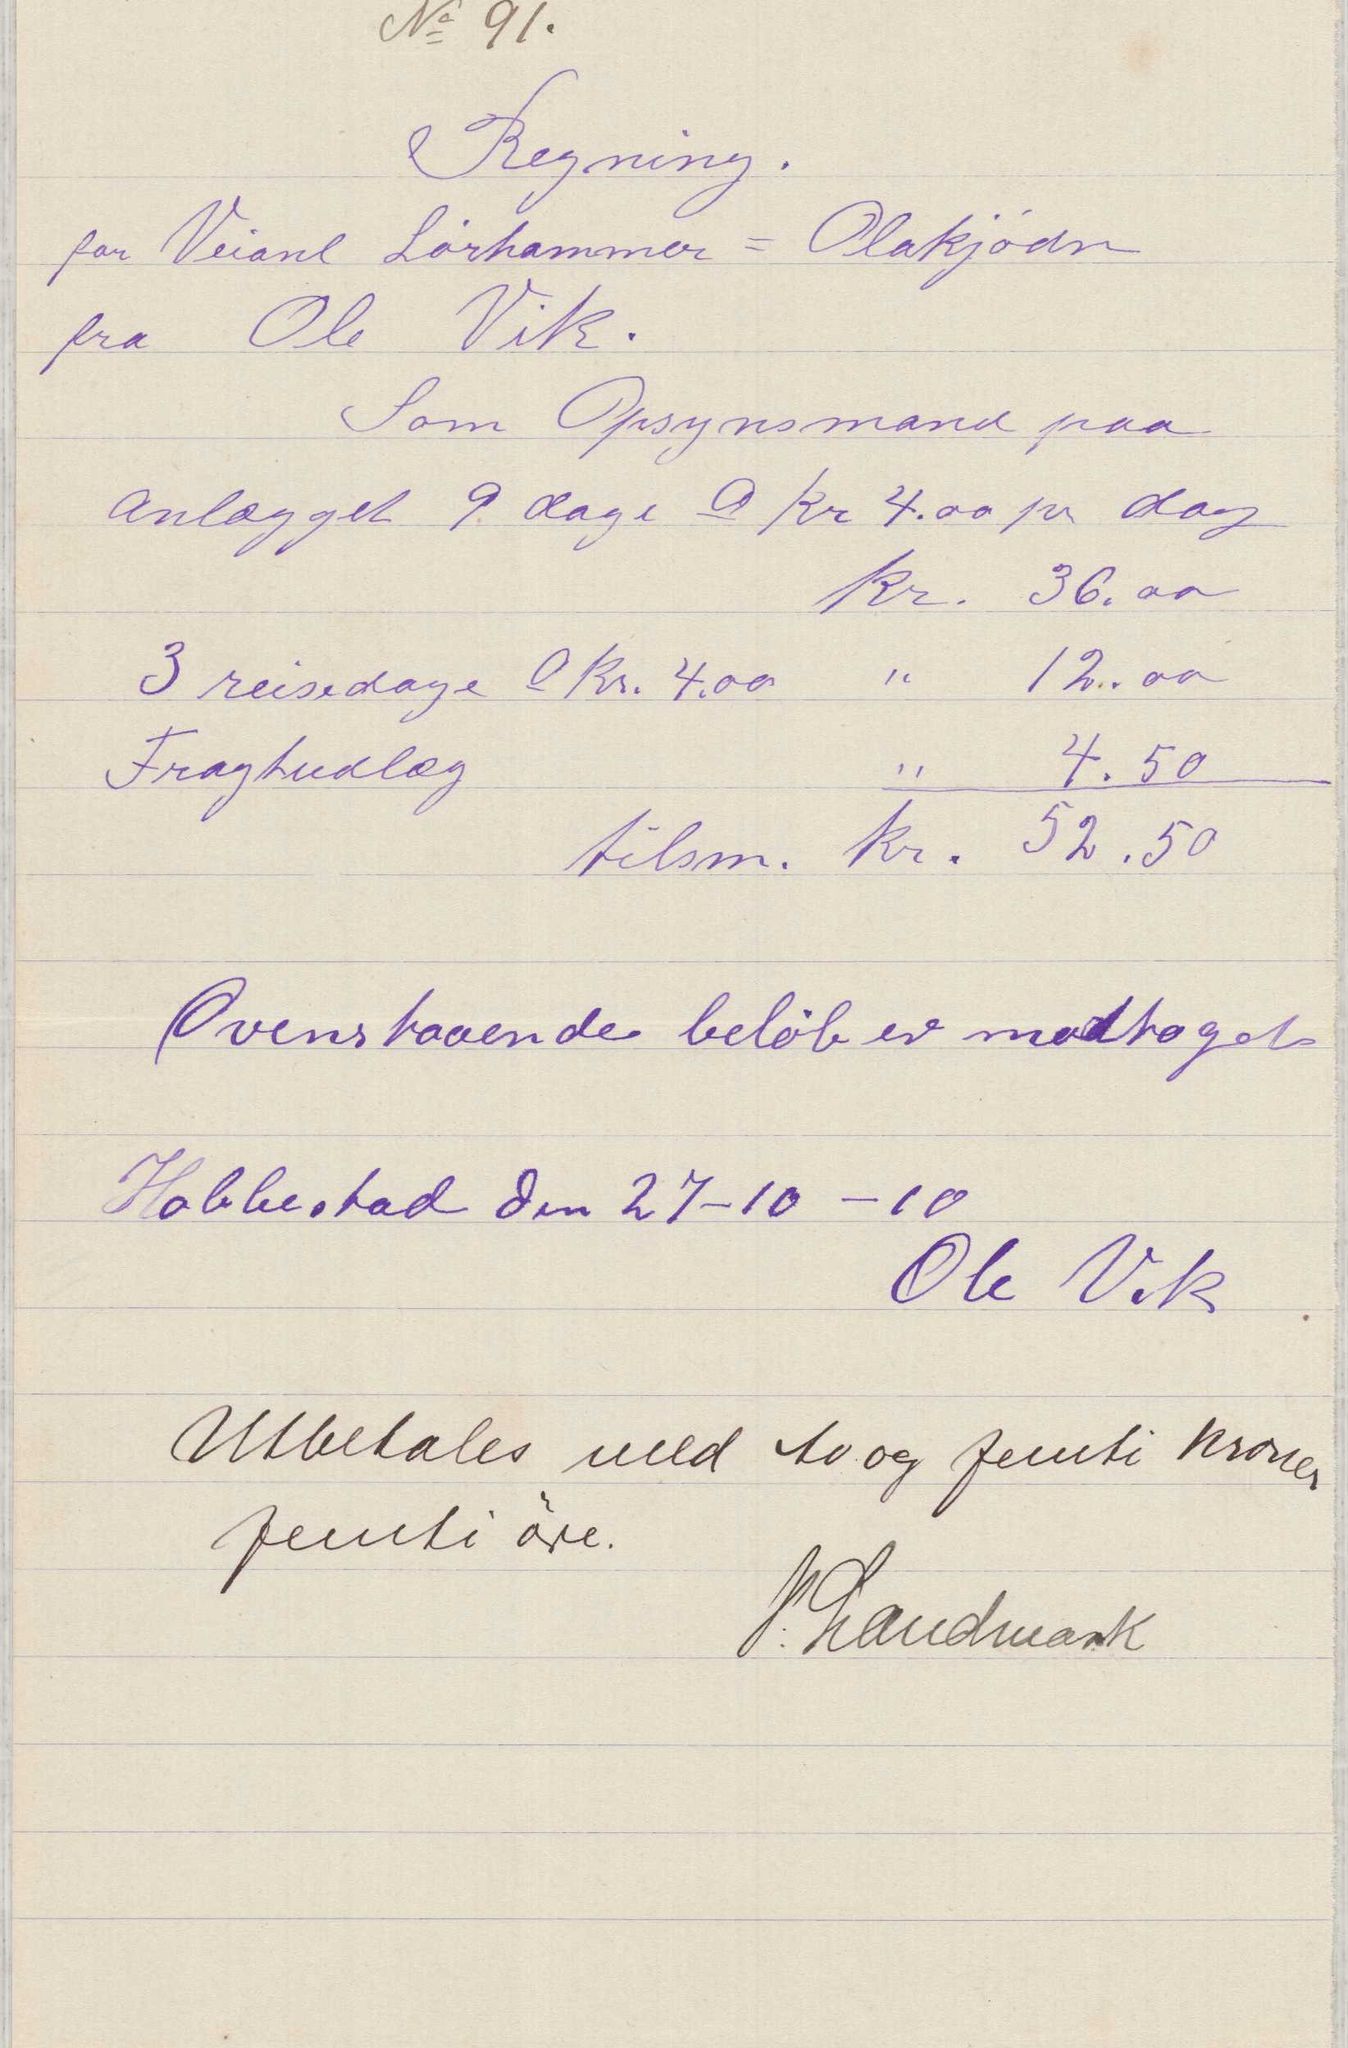 No 91.
Regning.
for Veianl Lörhammer = Olakjödn
fra Ole Vik.
Som Opsynsmand paa
anlægget 9 dage a kr 4.00 pr dag
kr. 36.00
3 reisedage a kr. 4.00 " 12.00
Fragtudlæg " 4.50
tilsm. kr. 52.50
Ovenstaaende belöb er modtaget
Habbestad den 27-10-10
Ole Vik
Utbetales med to og femti kroner
femti öre.
Landmark